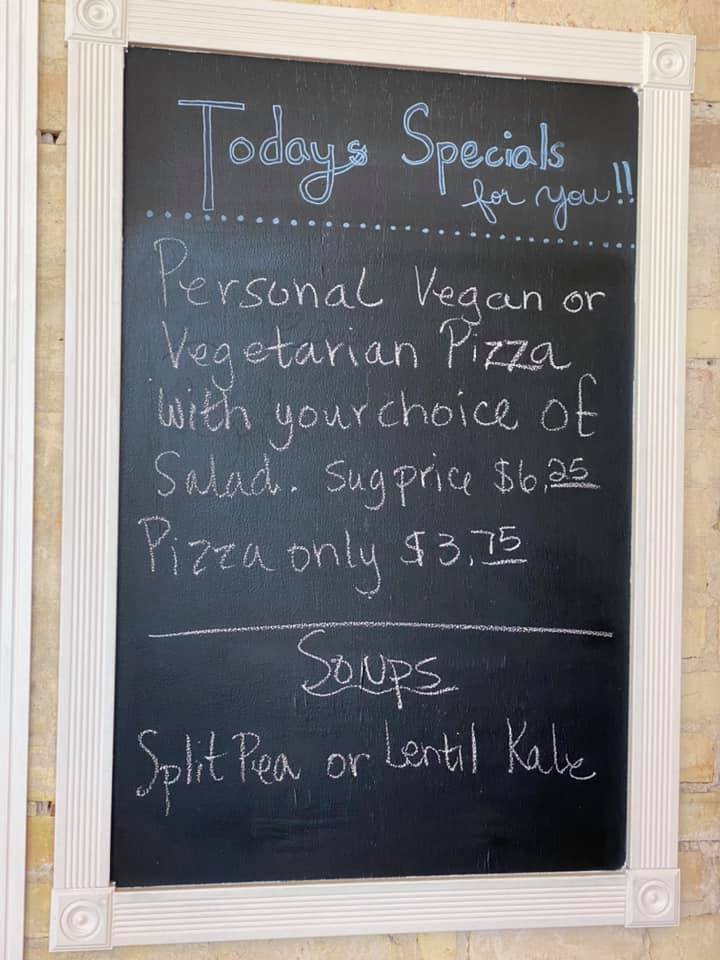 Todays Specials
for you!!
Personal Vegan or
Vegetarian Pizza
with your choice of
Salad. sug price $6.25
Pizza only $3.75
Soups
Split Pea or Lentil Kale